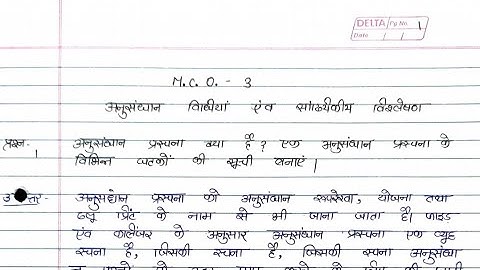 DELTA Pg No. 1
Date / /
M.C.O. - 3
अनुसंधान विधियां एंव सांख्यिकीय विश्लेषण
प्रश्न- 1 अनुसंधान प्ररचना क्या है? एक अनुसंधान प्ररचना के
विभिन्न घटकों की सूची बनाएं।
उत्तर- अनुसंधान प्ररचना को अनुसंधान रूपरेखा, योजना तथा
ब्लू प्रिंट के नाम से भी जाना जाता है। फाइड
एंव कर्लिंजर के अनुसार अनुसंधान प्ररचना एक व्यूह
रचना है, जिसकी रचना है, जिसकी रचना अनुसंधा